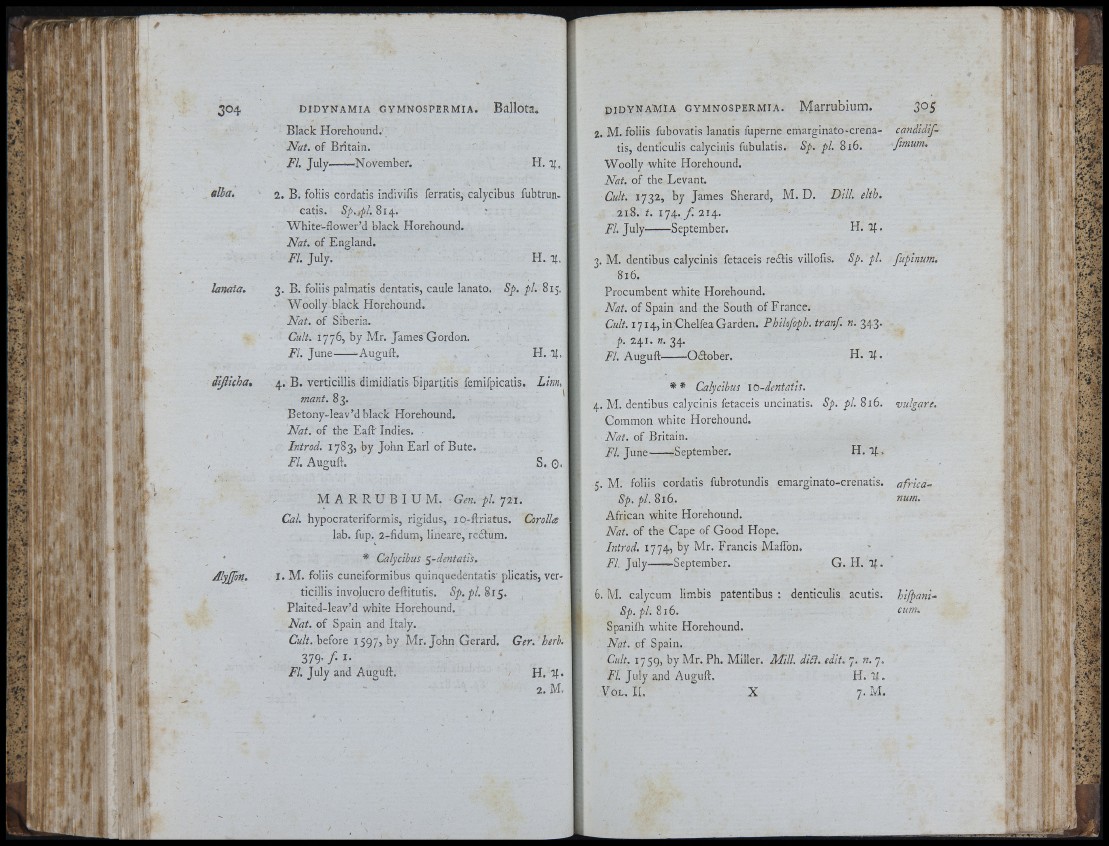 304 DIDYNAMIA GYMNOSPERMIA. Ballota.
Black Horehound.
Nat. of Britain.
Fl. July——November. H. ♃.
alba. 2. B. foliis cordatis indivisis ſerratis, calycibus ſubtrun-
catis. Sp. pl. 814.
White-flower'd black Horehound.
Nat. of England.
Fl. July. H. ♃.
lanata. 3. B. foliis palmatis dentatis, caule lanato. Sp. pl. 815.
Woolly black Horehound.
Nat. of Siberia.
Cult. 1776, by Mr. James Gordon.
Fl. June——Auguſt. H. ♃.
diſticha. 4. B. verticillis dimidiatis bipartitis ſemiſpicatis. Linn.
mant. 83.
Betony-leav'd black Horehound.
Nat. of the Eaſt Indies.
Introd. 1783, by John Earl of Bute.
Fl. Auguſt. S. ☉.
MARRUBIUM. Gen. pl. 721.
Cal. hypocrateriformis, rigidus, 10-ſtriatus. Corollæ
lab. ſup. 2-fidum, lineare, rectum.
* Calycibus 5-dentatis.
Alyſſon. 1. M. foliis cuneiformibus quinquedentatis plicatis, ver-
ticillis involucro deſtitutis. Sp. pl. 815.
Plaited-leav'd white Horehound.
Nat. of Spain and Italy.
Cult. before 1597, by Mr. John Gerard. Ger. herb.
379. f. 1.
Fl. July and Auguſt. H. ♃.
2. M.
DIDYNAMIA GYMNOSPERMIA. Marrubium. 305
2. M. foliis ſubovatis lanatis ſuperne emarginato-crena- candidiſ-
tis, denticulis calycinis ſubulatis. Sp. pl. 816. ſimum.
Woolly white Horehound.
Nat. of the Levant.
Cult. 1732, by James Sherard, M. D. Dill. elth.
218. t. 174. f. 214.
Fl. July——September. H. ♃.
3. M. dentibus calycinis ſetaceis rectis villoſis. Sp. pl. ſupinum.
816.
Procumbent white Horehound.
Nat. of Spain and the South of France.
Cult. 1714, in Chelſea Garden. Philoſoph. tranſ. n. 343.
p. 241. n. 34.
Fl. Auguſt——October. H. ♃.
* * Calycibus 10-dentatis.
4. M. dentibus calycinis ſetaceis uncinatis. Sp. pl. 816. vulgare.
Common white Horehound.
Nat. of Britain.
Fl. June——September. H. ♃.
5. M. foliis cordatis ſubrotundis emarginato-crenatis. africa-
Sp. pl. 816. num.
African white Horehound.
Nat. of the Cape of Good Hope.
Introd. 1774, by Mr. Francis Maſſon.
Fl. July——September. G. H. ♃.
6. M. calycum limbis patentibus : denticulis acutis. hiſpani-
Sp. pl. 816. cum.
Spaniſh white Horehound.
Nat. of Spain.
Cult. 1759, by Mr. Ph. Miller. Mill. dict. edit. 7. n. 7.
Fl. July and Auguſt. H. ♃.
VOL. II. X 7. M.